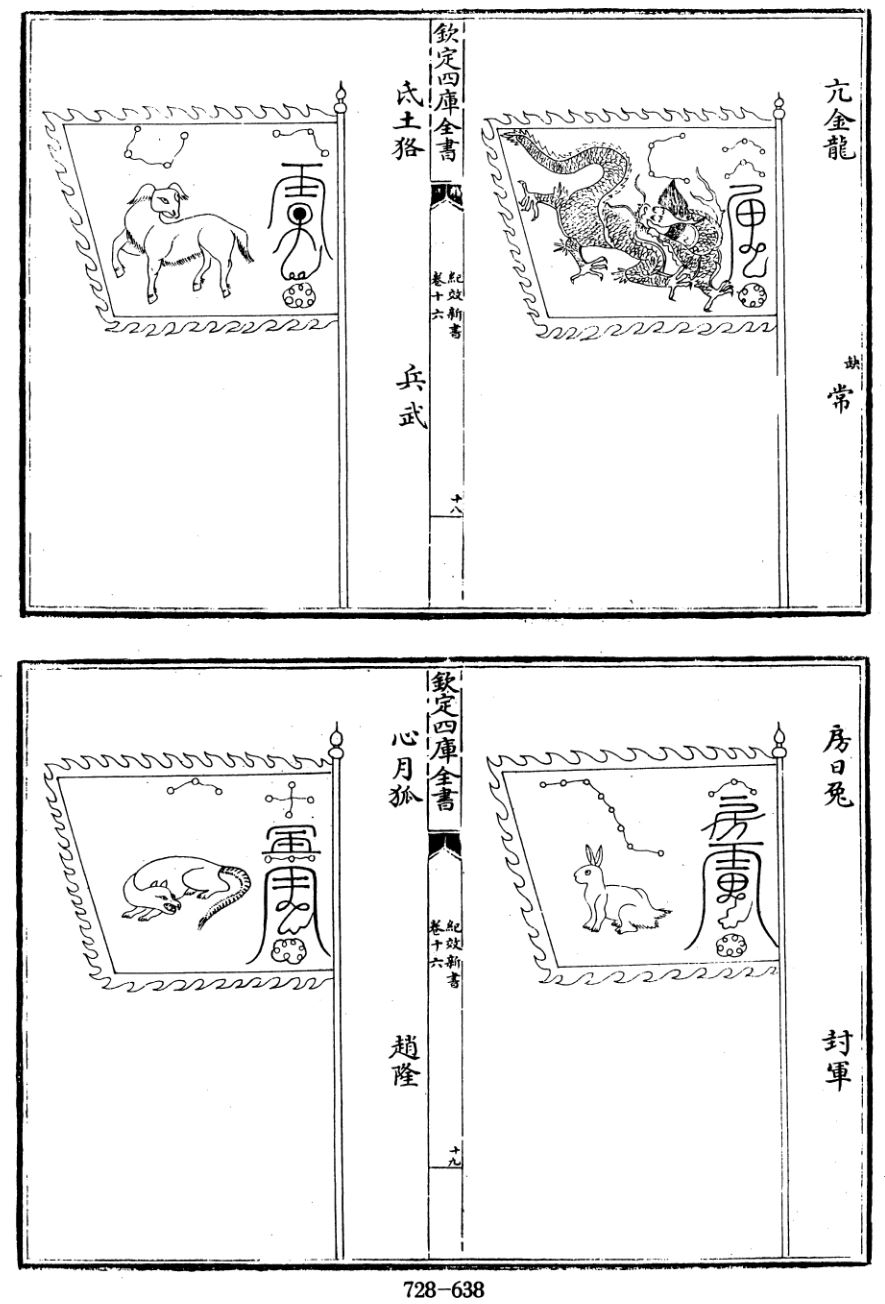 亢金龍
缺
常
欽定四庫全書
紀效新書
卷十六
十八
氐土狢
兵武
房日兔
封軍
欽定四庫全書
紀效新書
卷十六
十九
心月狐
趙隆
728-638